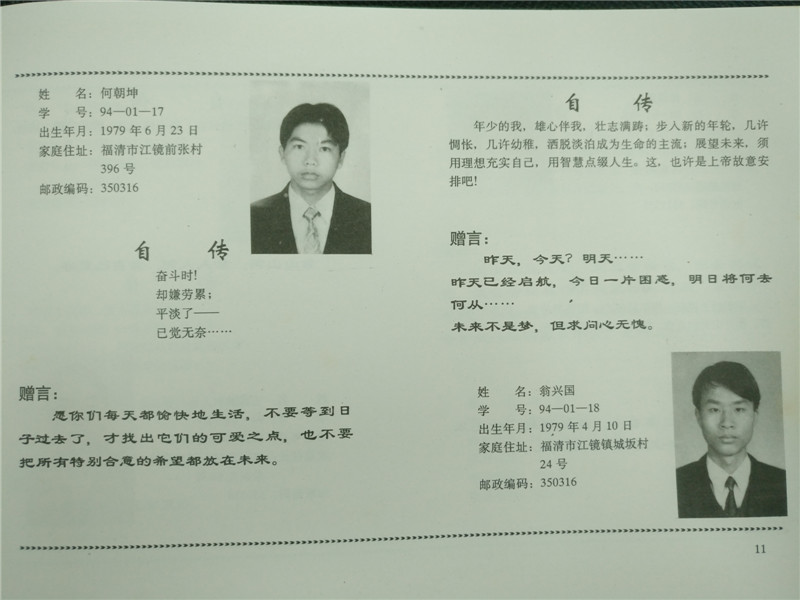 姓　　名：何朝坤
学　　号：94—01—17
出生年月：1979 年 6 月 23 日
家庭住址：福清市江镜前张村
396 号
邮政编码：350316
自　传
奋斗时！
却嫌劳累；
平淡了——
已觉无奈……
赠言：
愿你们每天都愉快地生活，不要等到日
子过去了，才找出它们的可爱之点，也不要
把所有特别合意的希望都放在未来。
自　传
年少的我，雄心伴我，壮志满踌；步入新的年轮，几许
惆怅，几许幼稚，洒脱淡泊成为生命的主流；展望未来，须
用理想充实自己，用智慧点缀人生。这，也许是上帝故意安
排吧！
赠言：
昨天，今天？明天……
昨天已经启航，今日一片困惑，明日将何去
何从……
未来不是梦，但求问心无愧。
姓　　名：翁兴国
学　　号：94—01—18
出生年月：1979 年 4 月 10 日
家庭住址：福清市江镜镇城坂村
24 号
邮政编码：350316
11